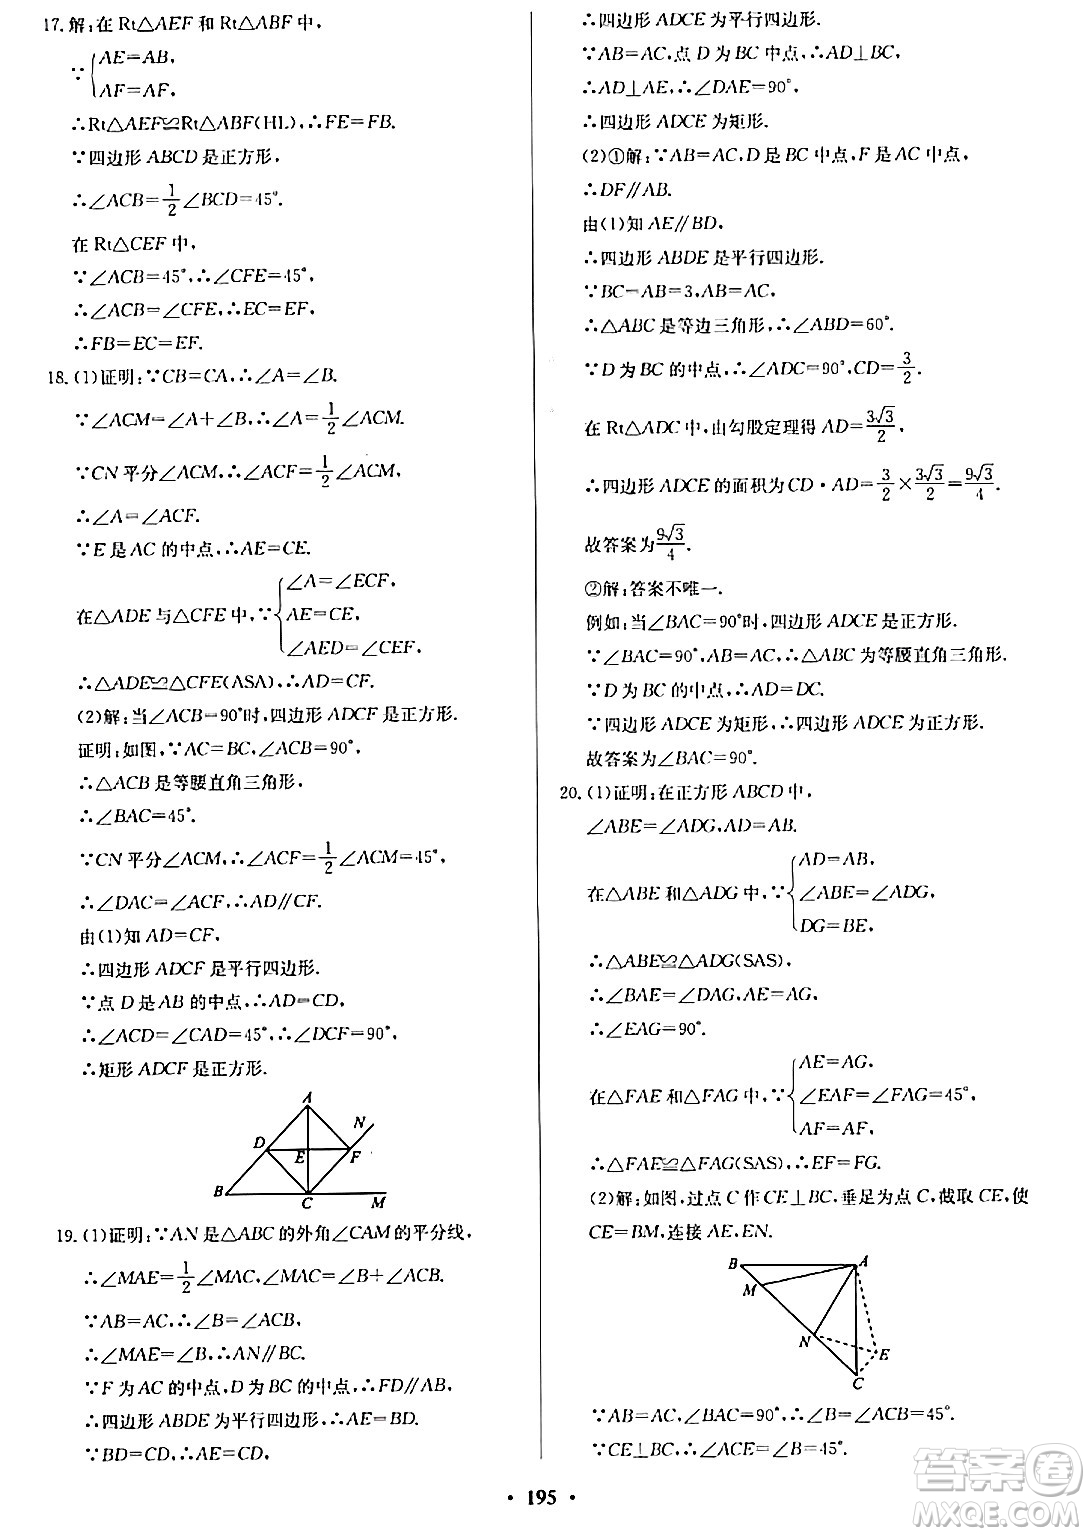 17.解:在 Rt△AEF 和 Rt△ABF 中,
∵{AE=AB,
AF=AF,
∴Rt△AEF≌Rt△ABF(HL),∴FE=FB.
∵四边形 ABCD 是正方形,
∴∠ACB=1/2∠BCD=45°.
在 Rt△CEF 中,
∵∠ACB=45°,∴∠CFE=45°,
∴∠ACB=∠CFE,∴EC=EF,
∴FB=EC=EF.
18.(1)证明:∵CB=CA,∴∠A=∠B.
∵∠ACM=∠A+∠B,∴∠A=1/2∠ACM.
∵CN 平分∠ACM,∴∠ACF=1/2∠ACM,
∴∠A=∠ACF.
∵E 是 AC 的中点,∴AE=CE.
在△ADE 与△CFE 中,∵{∠A=∠ECF,
AE=CE,
∠AED=∠CEF,
∴△ADE≌△CFE(ASA),∴AD=CF.
(2)解:当∠ACB=90°时,四边形 ADCF 是正方形.
证明:如图,∵AC=BC,∠ACB=90°,
∴△ACB 是等腰直角三角形,
∴∠BAC=45°.
∵CN 平分∠ACM,∴∠ACF=1/2∠ACM=45°,
∴∠DAC=∠ACF,∴AD∥CF.
由(1)知 AD=CF,
∴四边形 ADCF 是平行四边形.
∵点 D 是 AB 的中点,∴AD=CD,
∴∠ACD=∠CAD=45°,∴∠DCF=90°,
∴矩形 ADCF 是正方形.
A
N
D
E
F
B
C
M
19.(1)证明:∵AN 是△ABC 的外角∠CAM 的平分线,
∴∠MAE=1/2∠MAC,∠MAC=∠B+∠ACB.
∵AB=AC,∴∠B=∠ACB,
∴∠MAE=∠B,∴AN∥BC.
∵F 为 AC 的中点,D 为 BC 的中点,∴FD∥AB,
∴四边形 ABDE 为平行四边形,∴AE=BD.
∵BD=CD,∴AE=CD,
∴四边形 ADCE 为平行四边形.
∵AB=AC,点 D 为 BC 中点,∴AD⊥BC,
∴AD⊥AE,∴∠DAE=90°,
∴四边形 ADCE 为矩形.
(2)①解:∵AB=AC,D 是 BC 中点,F 是 AC 中点,
∴DF∥AB.
由(1)知 AE∥BD,
∴四边形 ABDE 是平行四边形.
∵BC=AB=3,AB=AC,
∴△ABC 是等边三角形,∴∠ABD=60°.
∵D 为 BC 的中点,∴∠ADC=90°,CD=3/2.
在 Rt△ADC 中,由勾股定理得 AD=3√3/2,
∴四边形 ADCE 的面积为 CD·AD=3/2×3√3/2=9√3/4.
故答案为9√3/4.
②解:答案不唯一.
例如:当∠BAC=90°时,四边形 ADCE 是正方形.
∵∠BAC=90°,AB=AC,∴△ABC 为等腰直角三角形.
∵D 为 BC 的中点,∴AD=DC.
∵四边形 ADCE 为矩形,∴四边形 ADCE 为正方形.
故答案为∠BAC=90°.
20.(1)证明:在正方形 ABCD 中,
∠ABE=∠ADG,AD=AB.
在△ABE 和△ADG 中,∵{AD=AB,
∠ABE=∠ADG,
DG=BE,
∴△ABE≌△ADG(SAS),
∴∠BAE=∠DAG,AE=AG,
∴∠EAG=90°.
在△FAE 和△FAG 中,∵{AE=AG,
∠EAF=∠FAG=45°,
AF=AF,
∴△FAE≌△FAG(SAS),∴EF=FG.
(2)解:如图,过点 C 作 CE⊥BC,垂足为点 C,截取 CE,使
CE=BM,连接 AE,EN.
B
A
M
N
E
C
∵AB=AC,∠BAC=90°,∴∠B=∠ACB=45°.
∵CE⊥BC,∴∠ACE=∠B=45°.
· 195 ·
答案圈
MXQE.COM